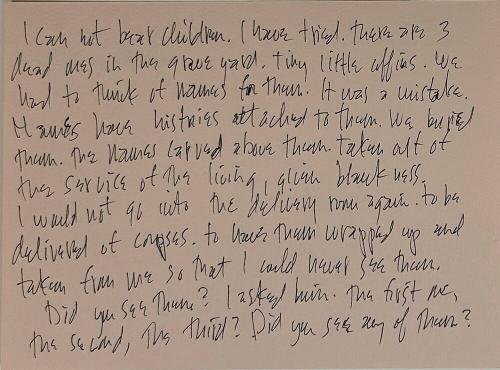 I can not bear children. I have tried. there are 3
dead ones in the grave yard. tiny little coffins. we
had to think of names for them. It was a mistake.
Names have histories attached to them. We buried
them. the names carved above them. taken out of
the service of the living, given blackness.
I would not go into the delivery room again. to be
delivered of corpses. to have them wrapped up and
taken from me so that I could never see them.
Did you see them? I asked him. the first one,
the second, the third? Did you see any of them?